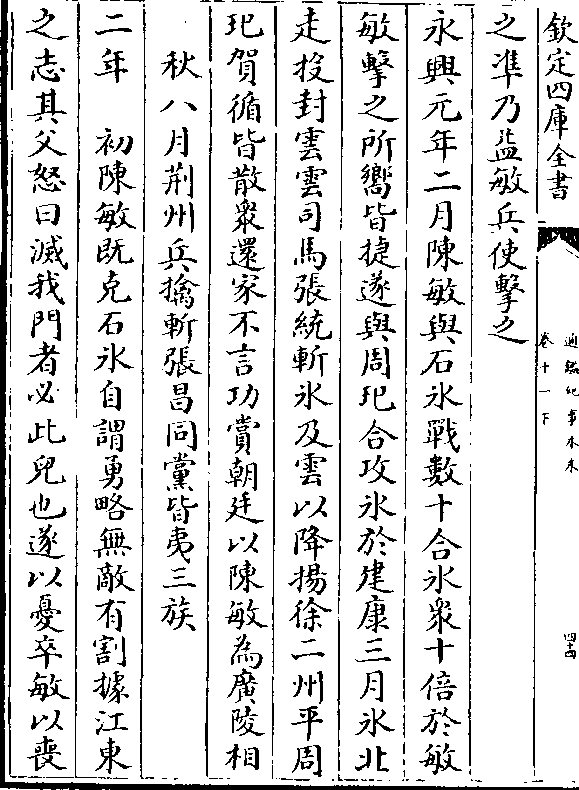 欽定四庫全書
通鑑紀事本末
卷十一下
四十四
之準乃益敏兵使擊之
永興元年二月陳敏與石氷戰數十合氷衆十倍於敏
敏擊之所嚮皆捷遂與周玘合攻氷於建康三月氷北
走投封雲雲司馬張統斬氷及雲以降揚徐二州平周
玘賀循皆散衆還家不言功賞朝廷以陳敏為廣陵相
秋八月荆州兵擒斬張昌同黨皆夷三族
二年　初陳敏既克石氷自謂勇略無敵有割據江東
之志其父怒曰滅我門者必此兒也遂以憂卒敏以喪